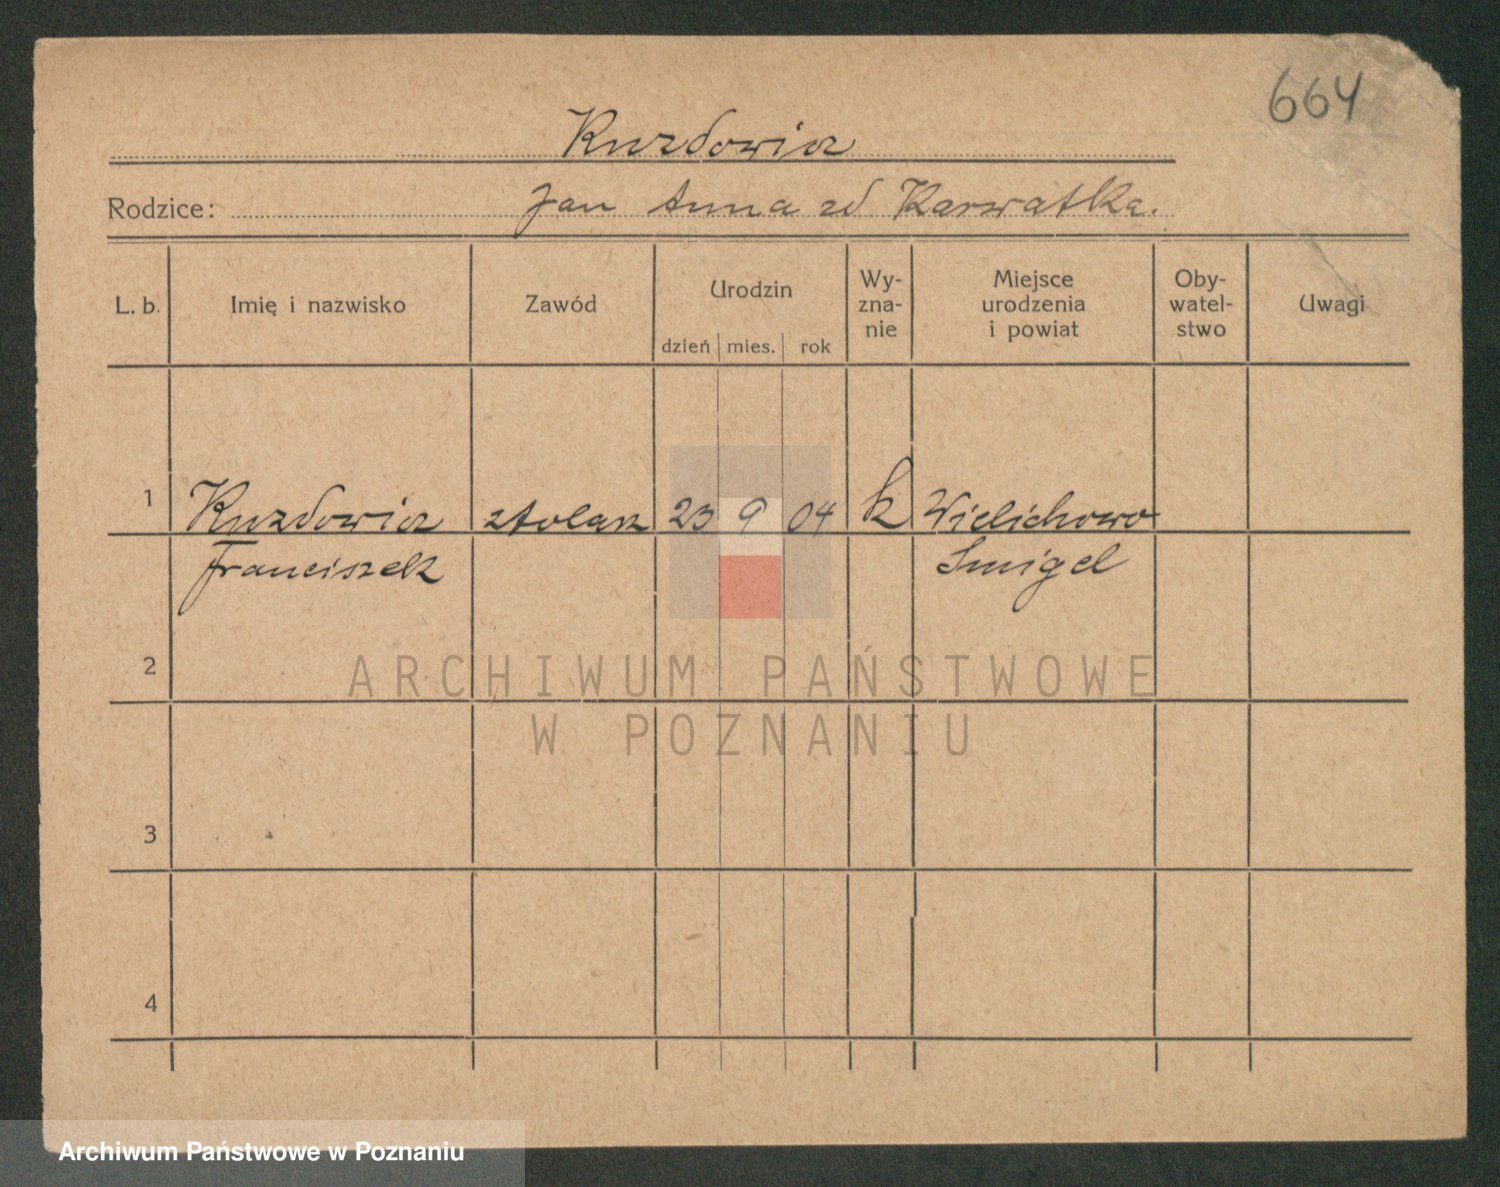 664
Kuzdowicz
Rodzice: Jan Anna zd Karwatka.
L. b. Imię i nazwisko Zawód Urodzin dzień mies. rok Wy-zna-nie Miejsce urodzenia i powiat Oby-watel-stwo Uwagi
1 Kuzdowicz stolarz 23 9 04 k Wielichowo
Franciszek Smigel
2
ARCHIWUM PAŃSTWOWE
W POZNANIU
3
4
Archiwum Państwowe w Poznaniu